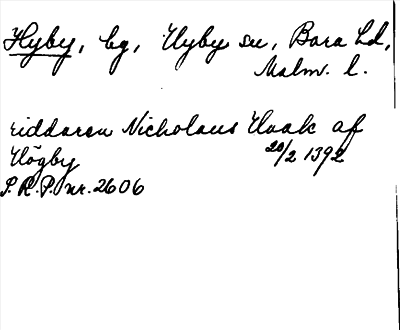 Hyby, by, Hyby sn, Bara hd,
Malm. l.
riddaren Nicholaus Haak af
Högby 20/2 1392
S.R.P. nr. 2606